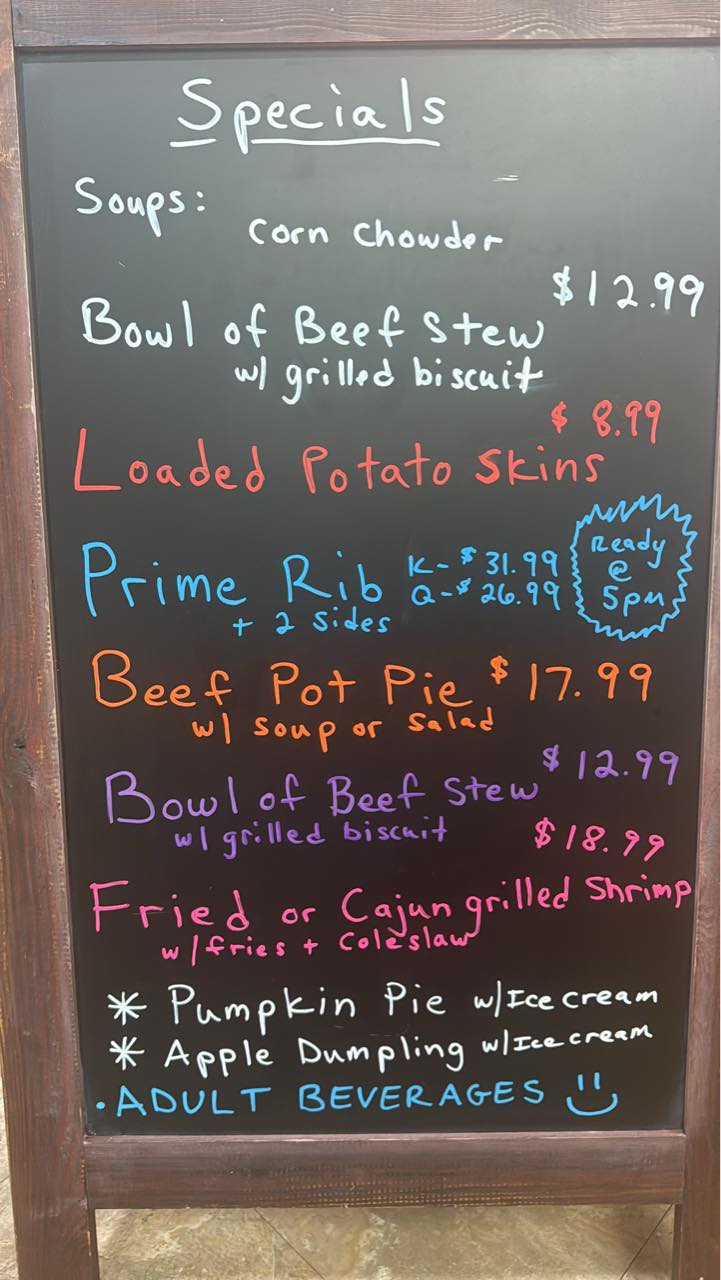 Specials
Soups:
Corn Chowder
$12.99
Bowl of Beef Stew
w/ grilled biscuit
$ 8.99
Loaded Potato Skins
Prime Rib K-$ 31.99
Q-$ 26.99
+ 2 sides
Ready
@
5pm
Beef Pot Pie $17.99
w/ soup or salad
$ 12.99
Bowl of Beef Stew
w/ grilled biscuit
$18.99
Fried or Cajun grilled Shrimp
w/fries + Coleslaw
* Pumpkin Pie w/Ice cream
* Apple Dumpling w/Ice cream
. ADULT BEVERAGES